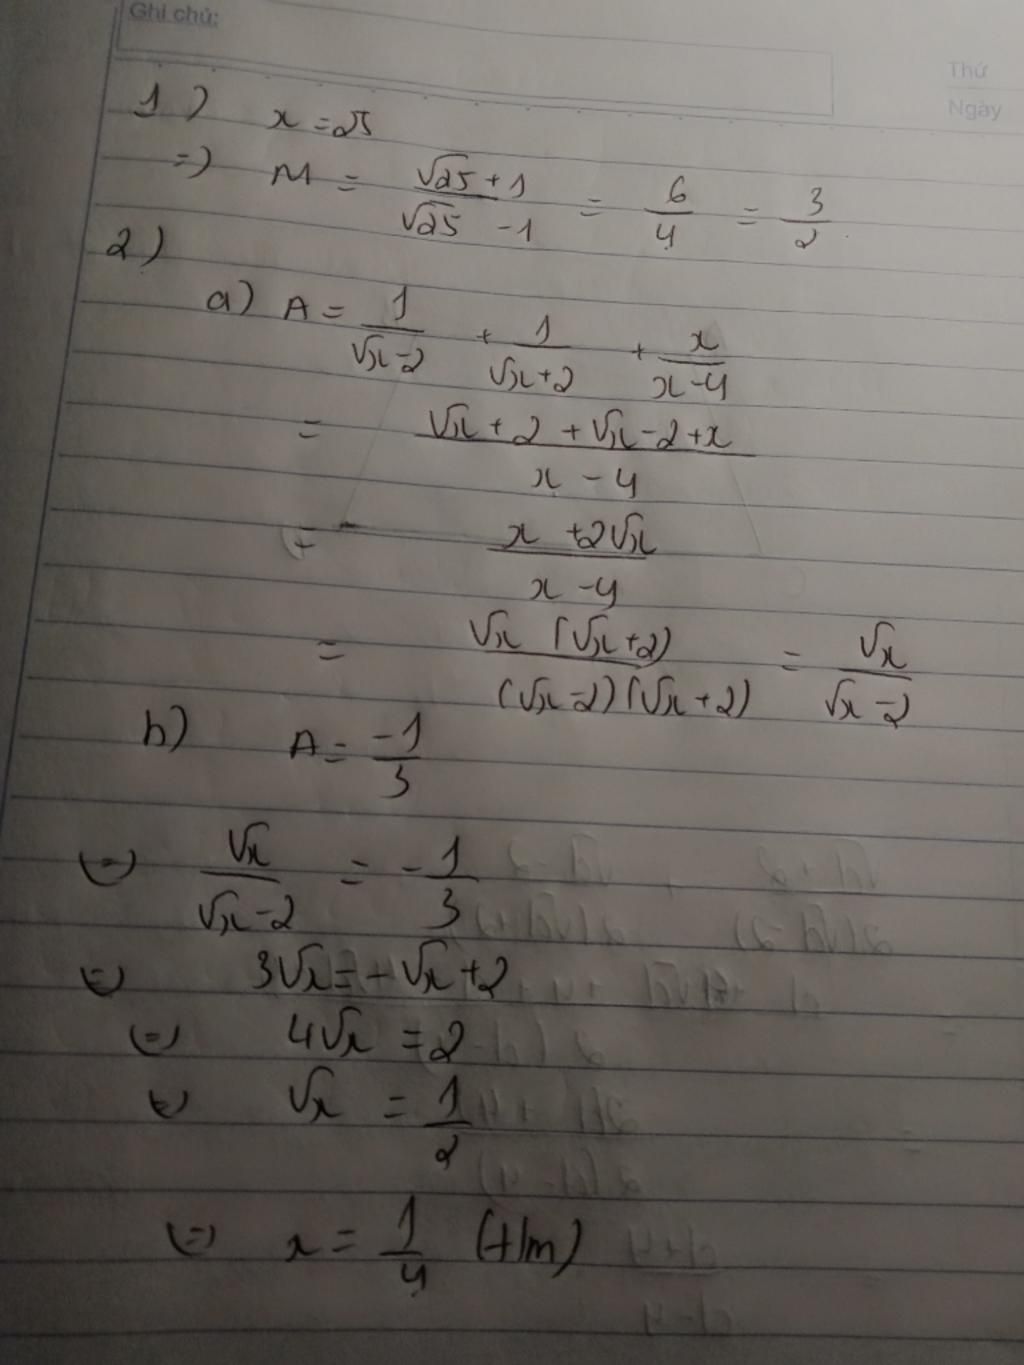 Ghi chú:
Thứ
Ngày
1) x = 25
=) M = (√25 + 1)/(√25 - 1) = 6/4 = 3/2
2)
a) A = 1/(√x - 2) + 1/(√x + 2) + x/(x - 4)
= (√x + 2 + √x - 2 + x)/(x - 4)
= (x + 2√x)/(x - 4)
= √x (√x + 2)/((√x - 2)(√x + 2)) = √x/(√x - 2)
b) A = -1/3
(=) √x/(√x - 2) = -1/3
(=) 3√x = -√x + 2
(=) 4√x = 2
(=) √x = 1/2
(=) x = 1/4 (t/m)